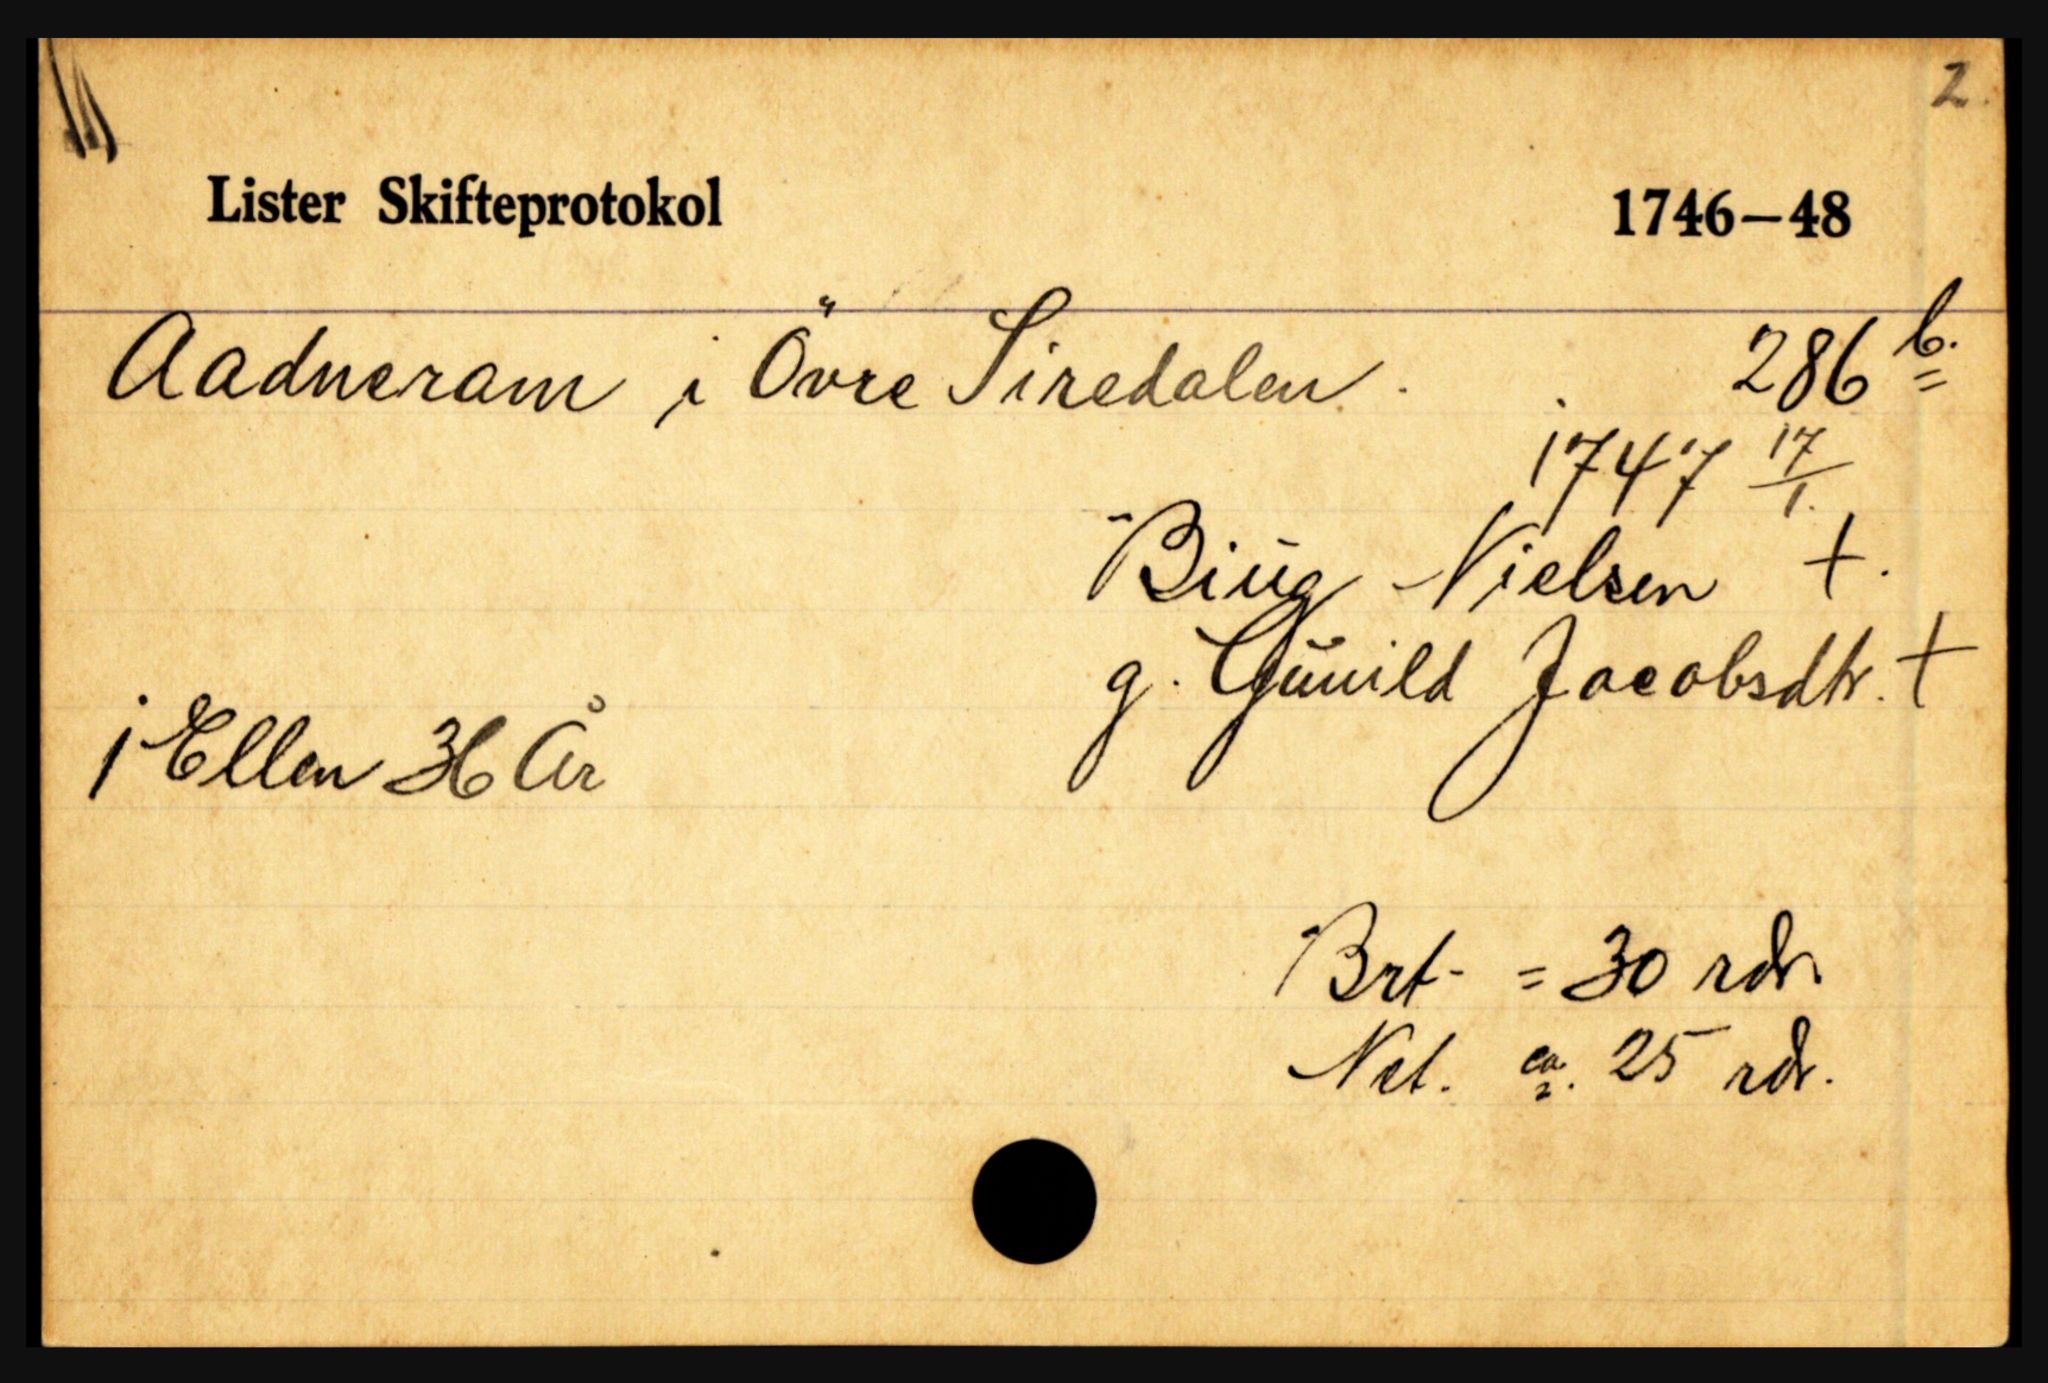 2.
Lister Skifteprotokol 1746—48
Aadneram i Övre Siredalen. 286 b.
1747 17/1.
Biug Nielsen +.
g. Gunild Jacobsdtr. +
1 Ellen 36 År
Brt. = 30 rdr.
Net. ca. 25 rdr.